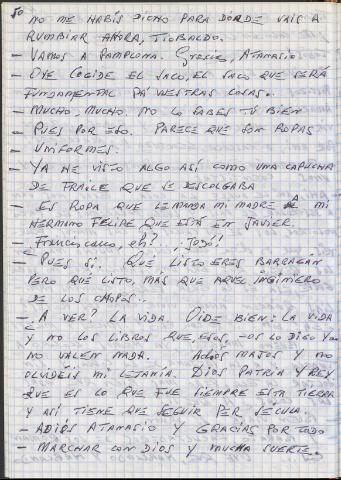 50
NO ME HABÉIS DICHO PARA DÓNDE VAIS A
RUMBIAR AHORA, TIOBALDO.
- VAMOS A PAMPLONA. Gracias, ATANASIO
- OYE COGIDE EL SACO, EL SACO QUE SERÁ
FUNDAMENTAL PA' NUESTRAS COSAS.
- MUCHO, MUCHO. NO LO SABES TÚ BIEN
- PUES POR ESO. PARECE QUE SON ROPAS
- UNIFORMES.
- YA HE VISTO. ALGO ASÍ COMO UNA CAPUCHA
DE FRAILE QUE SE DESCOLGABA
- ES ROPA QUE LE MANDA MI MADRE A MI
HERMANO FELIPE, QUE ESTÁ EN JAVIER.
- Franciscano, eh? ¡JODÓ!
- PUES SÍ. QUÉ LISTO ERES BARRAGÁN
PERO QUE LISTO, MÁS QUE AQUEL INGINIERO
DE LOS CHOPOS..
- ¿A VER? LA VIDA. OIDE BIEN: LA VIDA
Y NO LOS LIBROS QUE, ESOS, -OS LO DIGO YO-
NO VALEN NADA. ADIÓS MAJOS Y NO
OLVIDÉIS MI LETANÍA. DIOS PATRIA Y REY
QUE ES LO QUE FUE SIEMPRE ESTA TIERRA
Y ASÍ TIENE QUE SEGUIR PER SÉCULA.
- ADIÓS ATANASIO Y GRACIAS POR TODO
- MARCHAR CON DIOS Y MUCHA SUERTE.